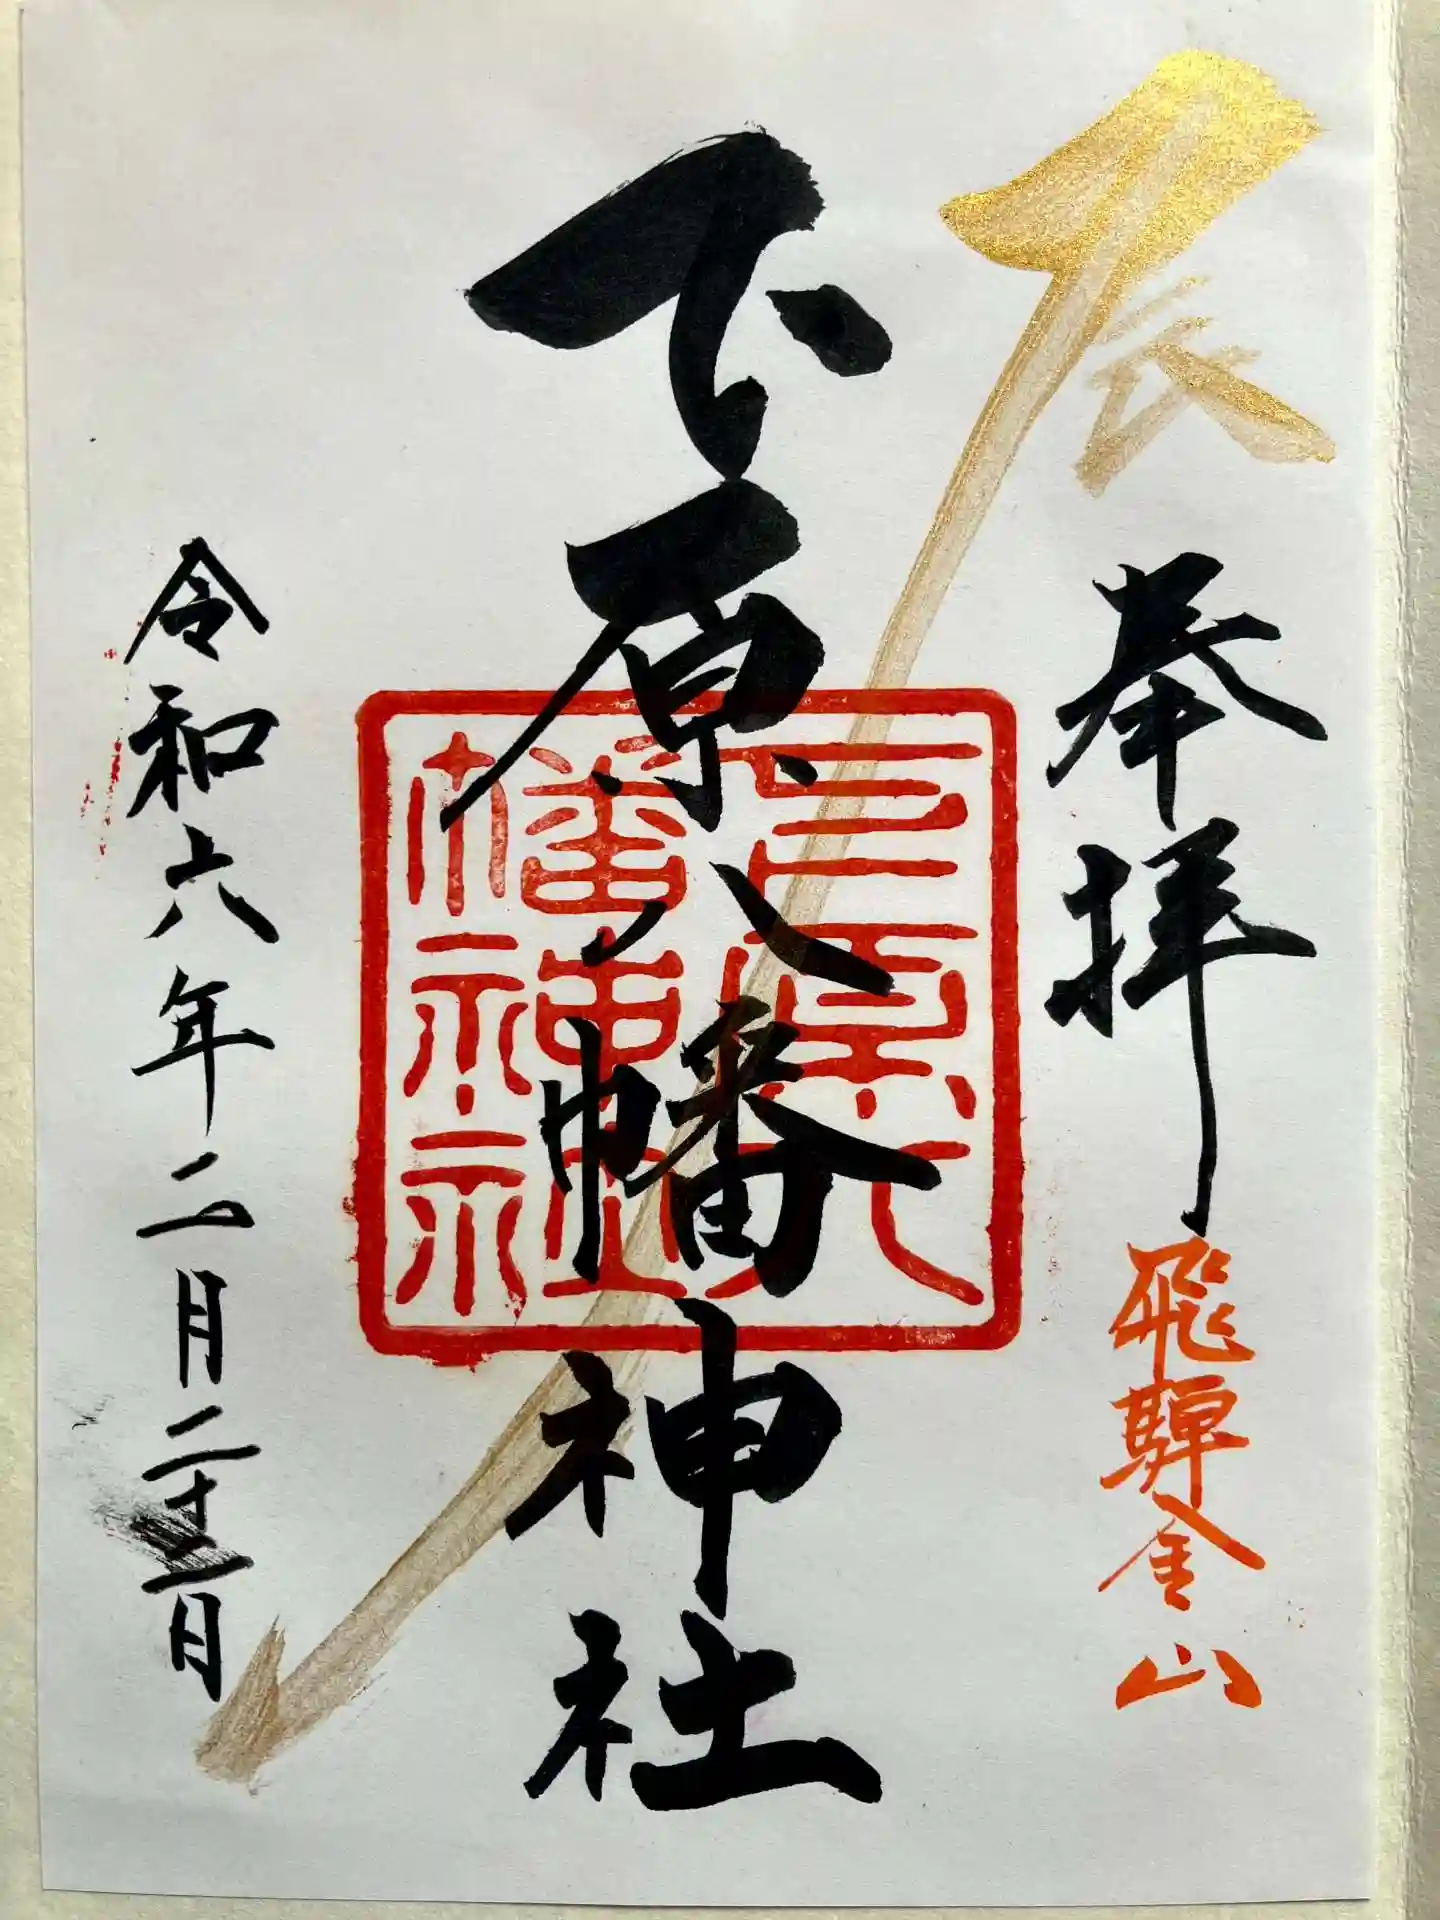 辰
奉拝
飛騨金山
下原八幡神社
下原八幡神社
令和六年二月二十二日